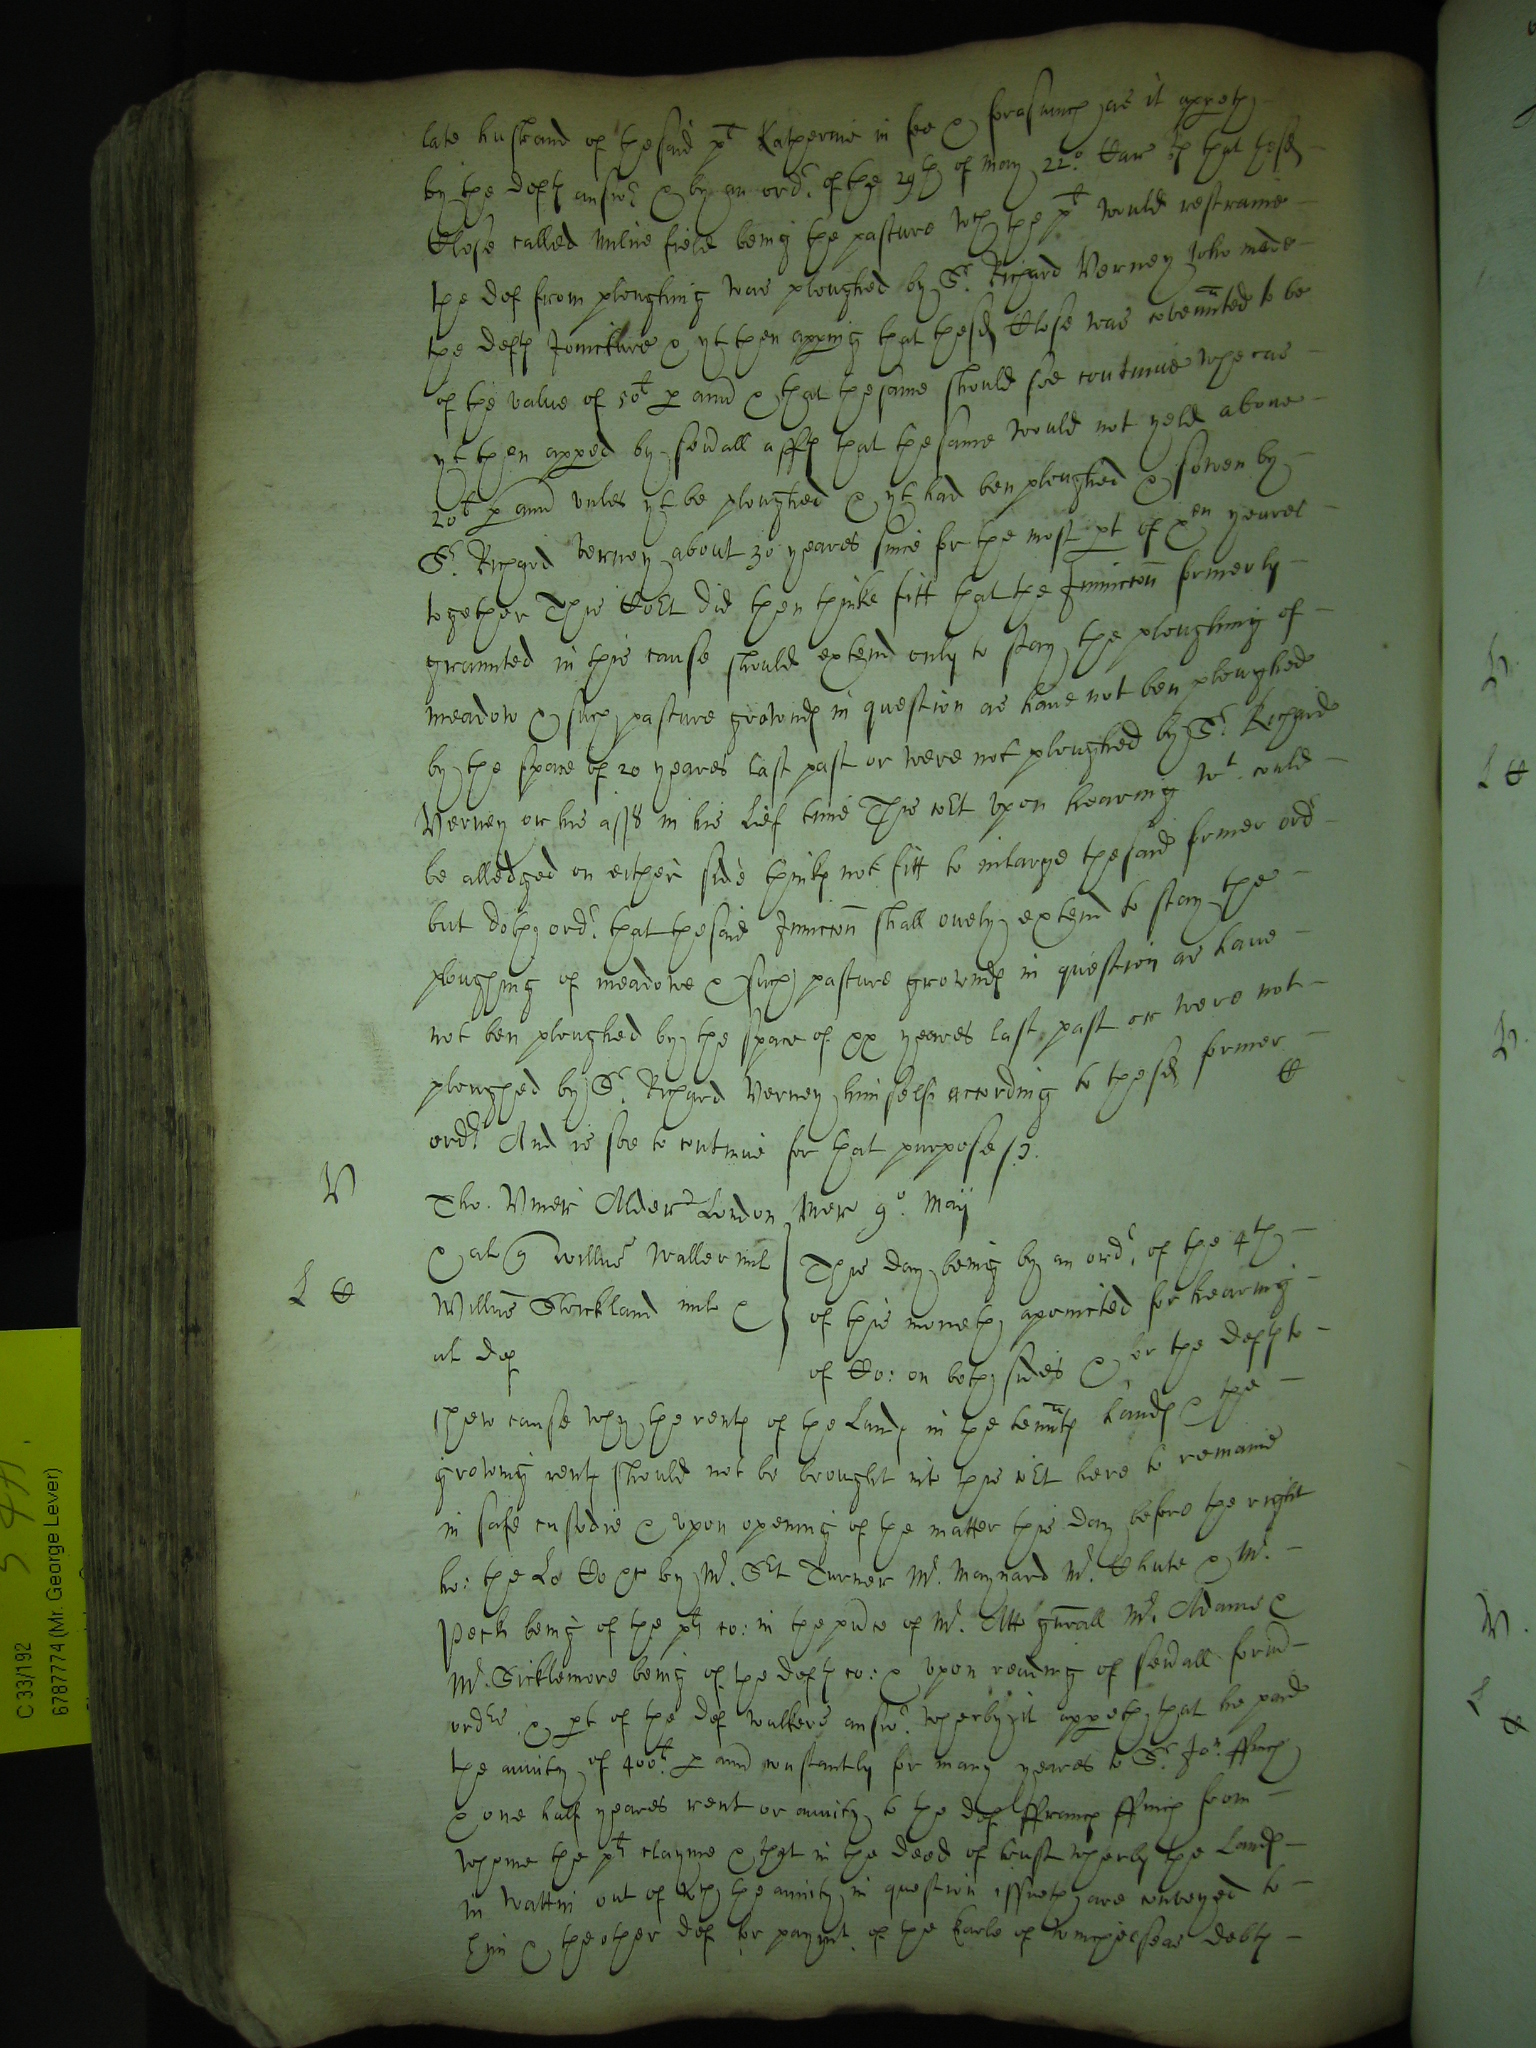 late husband of thesaid plt Katherine in fee & forasmuch as it appeth
by the defts answr & by an ordr of the 29th of May 22o Car that thesd
Close called Milne field being the pasture wch the plt would restraine
the def from ploughing was ploughed by Sr Richard Verney who made
the defts Joincture & yt then apping that thesd Close was covenñted to be
of the value of 50l p ann & that thesame should soe continue wheras
yt then apped by sevall affts that thesame would not yeld above
20l p ann unles yt be ploughed & yt had ben ploughed & sowen by
Sr Richard Verney about 30 yeares since for the most pt of xen yeares
together This Cort did then thinke fitt that the Iniuncc̃on formerly
graunted in this cause should extend only to stay the ploughing of
meadow & such pasture grownds in question as have not ben ploughed
by the space of 20 yeares last past or were not ploughed by Sr Richard
Verney or his ass in his lief time This cort upon hearing wt could
be alledged on either side thinks not fitt to inlarge thesaid former ord
but doth ordr that thesaid Iniuncc̃on shall onely extend to stay the
ploughing of meadowe & such pasture grownds in question as have
not ben ploughed by the space of xx yeares last past or were not
ploughed by Sr Richard Verney himself according to thesd former
ordr And is soe to continue for that purpose
V
Tho. Viner Alderm London
& al q Willus Waller mil
L C
Willus Strickland mil &
al def
Merc 9o. Maij
This day being by an ordr of the 4th
of this moneth apointed for hearing
of Co: on both sides & for the defts to
shew cause why the rents of the Lands in the tennts hands & the
growing rents should not be brought into this cort here to remaine
in safe custodie & upon opening of the matter this day before the right
ho: the Lo Co by Mr. Sert Turner Mr. Maynard Mr. Chute & Mr.
Peck being of the plts co: in the pñce of Mr. Att gñrall Mr. Adams &
Mr. Sicklemore being of the defts co: & upon reading of sevall form
ordrs & pt of the def Walkers answr wherby it appeth that he paid
the anuity of 400l p ann constantly for many yeares to Sr Jon. ffinch
& one half yeares rent or anuity to the def ffrancs ffinch from
whome the plts clayme & that in the deed of trust wherby the Lands
in out of wch the anuity in question issueth are conveyed to
him & the other def for paymt of the Earle of Winchelseas debts
C 33/192
6787774 (Mr. George Lever)